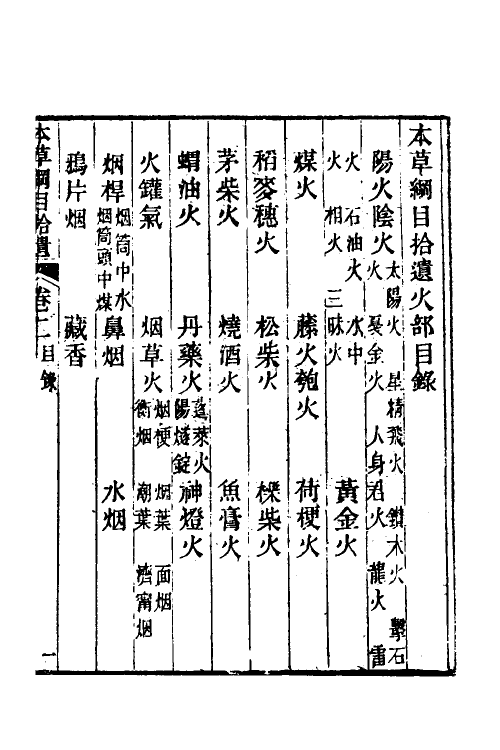 本草綱目拾遺火部目錄
陽火陰火 太陽火 星精飛火 鑽木火 擊石火 戛金火 人身君火 龍火 雷
火 石油火 水中火 相火 三昧火 黃金火
煤火 藤火炮火 荷梗火
稻麥穗火 松柴火 櫟柴火
茅柴火 燒酒火 魚膏火
蝟油火 丹藥火 蓬萊火 陽燧錠 神燈火
火罐氣 烟草火 烟梗 烟葉 面烟 衡烟 潮葉 濟甯烟
烟桿 烟筒中水 烟筒頭中煤 鼻烟 水烟
鴉片烟 藏香
本草綱目拾遺 卷二 目錄 一